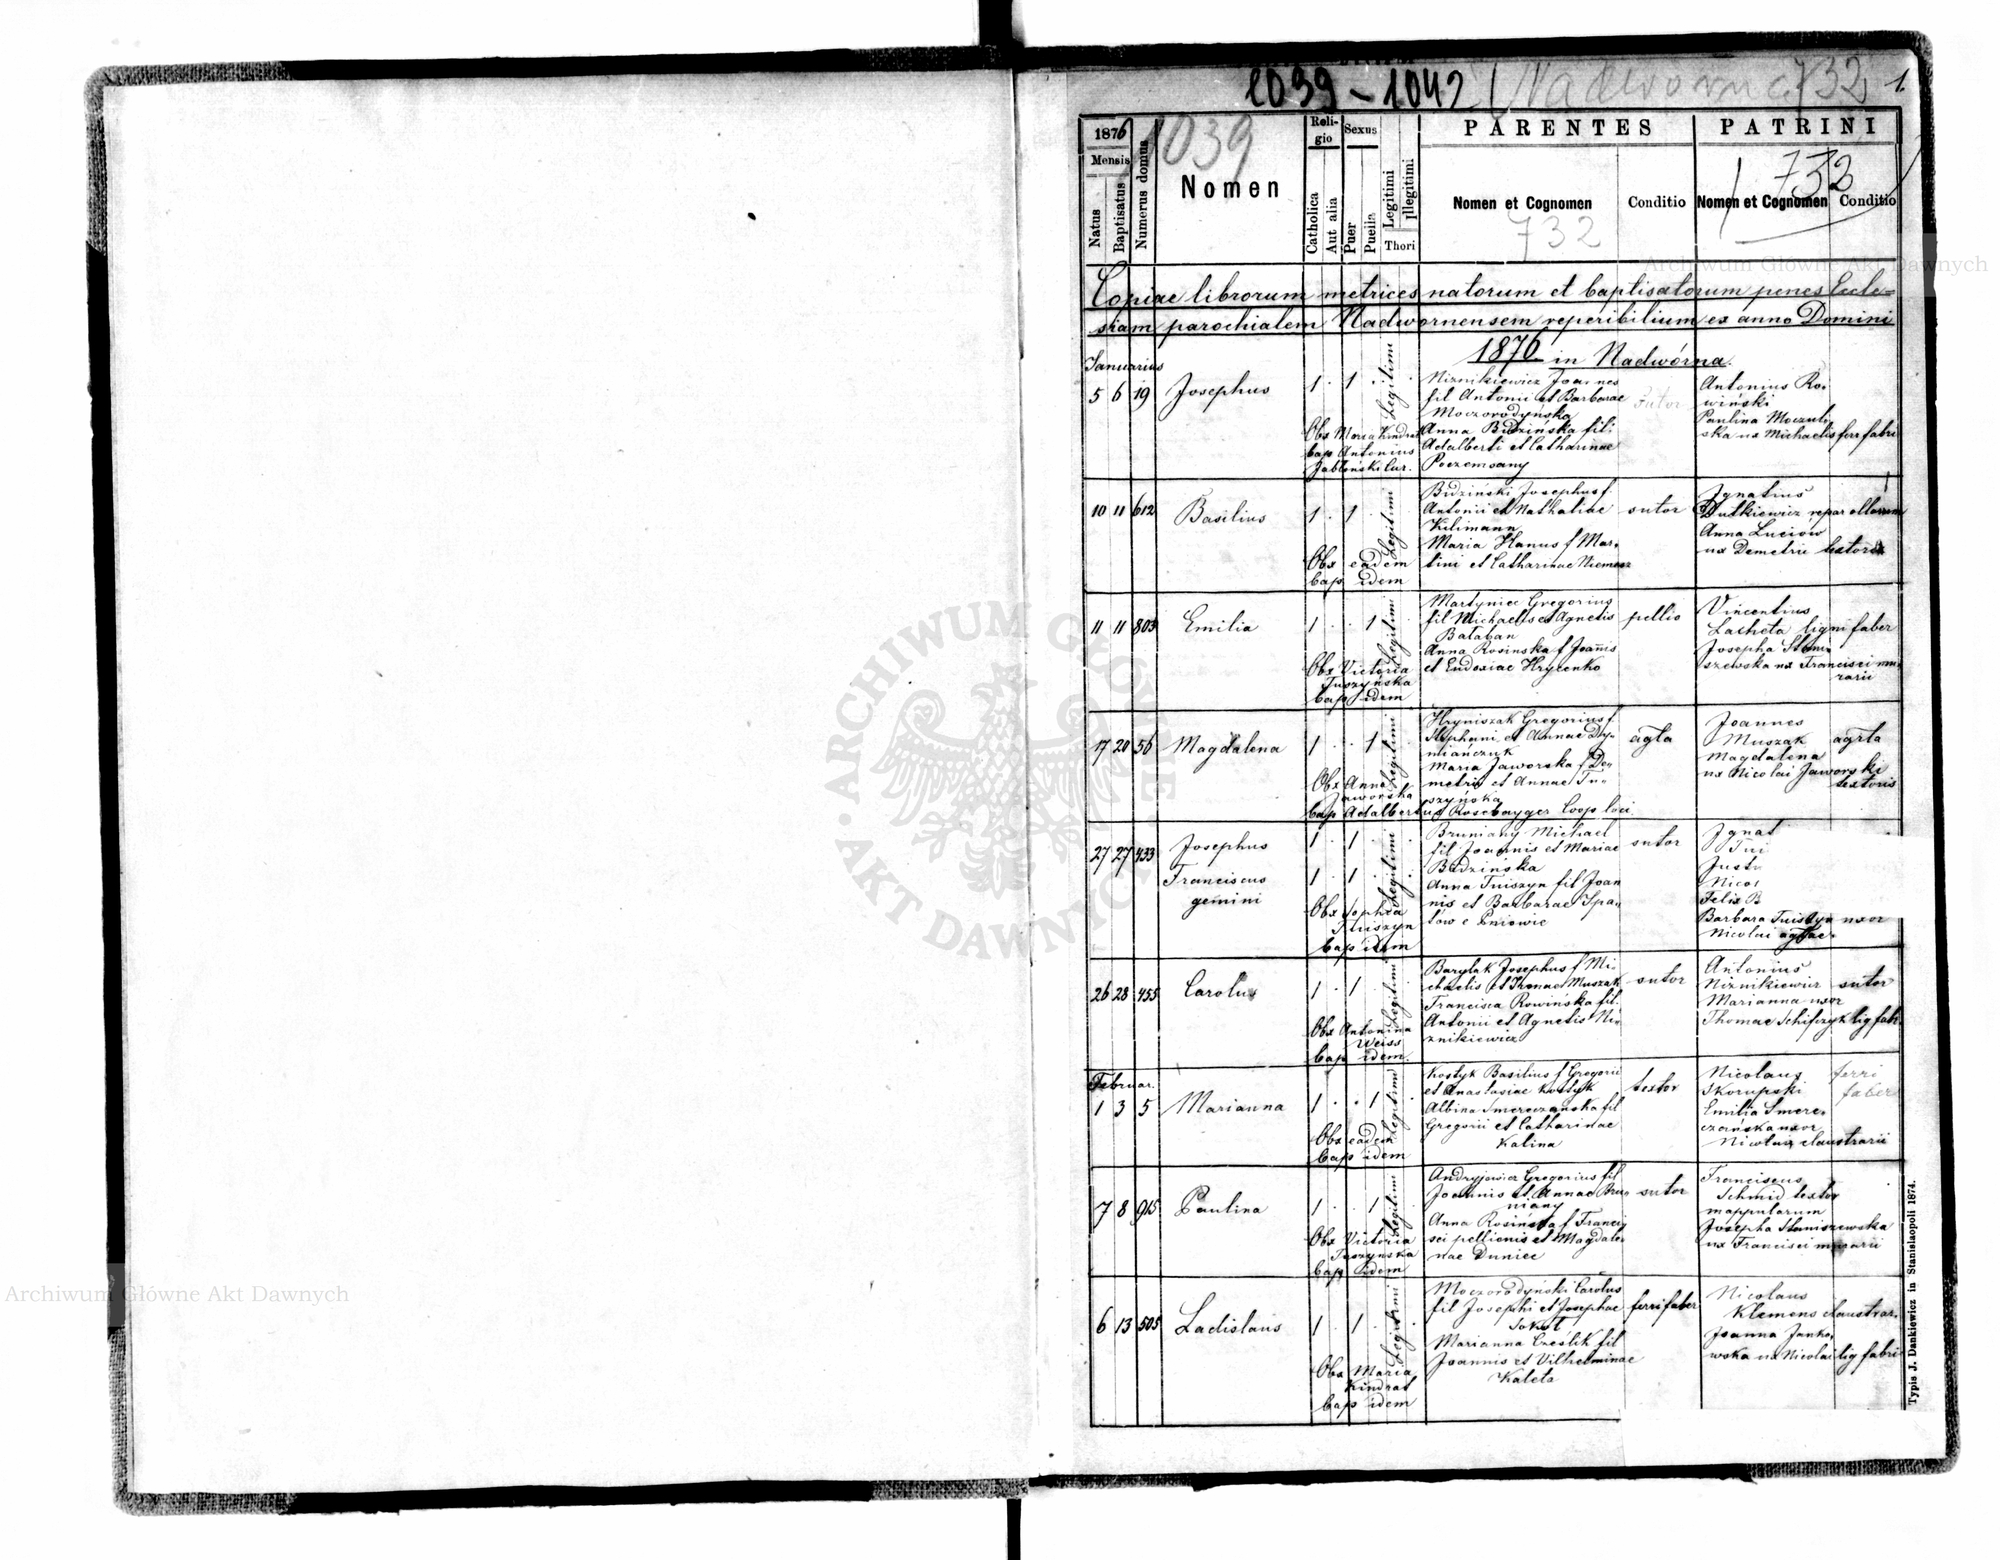 1039 - 1042 Nadwórna 732 1.
1876
Mensis
Natus
Baptisatus
Numerus domus
1039
Nomen
Religio
Catholica
Aut alia
Sexus
Puer
Puella
Legitimi
Illegitimi
Thori
PARENTES
Nomen et Cognomen
Conditio
732
PATRINI
732
Nomen et Cognomen
Conditio
Copiae librorum metrices natorum et baptisatorum penes Eccle=
siam parochialem Nadwornensem reperibilium ex anno Domini
1876 in Nadwórna.
Januarius
5 6 19 Josephus 1 . 1 . Legitimi
Obs Maria Kindrat
bap Antonius
Jabłoński Cur.
Niznikiewicz Joannes
fil Antonii et Barbarae
Moczorodyńska
Anna Bidzińska fil:
Adalberti et Catharinae
Poczemsany
sutor
Antonius Ro-
wiński
Paulina Moczuly
ska ux Michaelis ferrfabri
10 11 612 Basilius 1 . 1 Legitimi
Obs eadem
bap idem
Bidziński Josephus f.
Antonii et Nathaliae
Kilimann
Maria Hanus f Mar-
tini et Catharinae Niemesz
sutor
Ignatius
Dutkiewicz repar ollarum
Anna Luciów
ux Demetrii textoris
11 11 803 Emilia 1 . . 1 Legitimi
Obs Victoria
Tuszyńska
bap idem
Martyniec Gregorius
fil Michaelis et Agnetis
Bałaban
Anna Rosinska f Joannis
et Eudoxiae Hrycenko
pellio
Vincentius
Lacheta ligni faber
Josepha Stani-
szewska ux Francisci mu-
rarii
17 20 56 Magdalena 1 . . 1 Legitimi
Obs Anna
Jaworska
bap Adalbertus Rosebayger Coop loci
Hryniszak Gregorius f.
Stephani et Annae Dy-
miańczuk
Maria Jaworska f De-
metrii et Annae Tu-
szyńska
agta
Joannes
Muszak agrta
Magdalena
ux Nicolai Jaworski
textoris
27 27 433 Josephus 1 . 1 Legitimi
Franciscus 1 . 1 .
gemini
Obs Sophia
Tluszyn
bap idem
Bruniany Michael
fil Joannis et Mariae
Bidzińska
Anna Tuiszyn fil Joan
nis et Barbarae Spa-
tów e Pniowie
sutor
Ignat
Tui
Justi
Nicol
Felix B
Barbara Tuiszyn uxor
Nicolai agtae
26 28 455 Carolus 1 . 1 . Legitimi
Obs Antonina
Weiss
bap idem.
Barylak Josephus f Mi-
chaelis et Thomae Muszak
Francisca Rowińska fil.
Antonii et Agnetis Ni-
znikiewicz
sutor
Antonius
Niznikiewicz sutor
Marianna uxor
Thomae Schifczyk lig fabr.
Februar.
1 3 5 Marianna 1 . . 1 Legitimi
Obs eadem
bap idem
Kostyk Basilius f Gregorii
et Anastasiae Kostyk
Albina Smereczańska fil
Gregorii et Catharinae
Kalina
textor
Nicolaus ferri
Skorupski faber
Emilia Smere-
czańska uxor
Nicolai claustrarii
7 8 915 Paulina 1 . . 1 Legitimi
Obs Victoria
Tuszynska
bap idem
Andryjowicz Gregorius fil
Joannis et Annae Bru-
niany
Anna Rosińska f Franci
sci pellionis et Magdale
nae Duniec
sutor
Franciscus
Schmid textor
mappularum
Josepha Staniszewska
ux Francisci murarii
6 13 505 Ladislaus 1 . 1 . Legitimi
Obs Maria
Kindrat
bap idem
Moczorodyński Carolus
fil Josephi et Josephae
Sokoł
Marianna Czeslik fil
Joannis et Vilhelminae
Kaleta
ferrifaber
Nicolaus
Klemens claustrar.
Joanna Janko
wska ux Nicolai lig fabri
Typis J. Dankiewicz in Stanislaopoli 1874.
ARCHIWUM GŁÓWNE AKT DAWNYCH
Archiwum Główne Akt Dawnych
Archiwum Główne Akt Dawnych